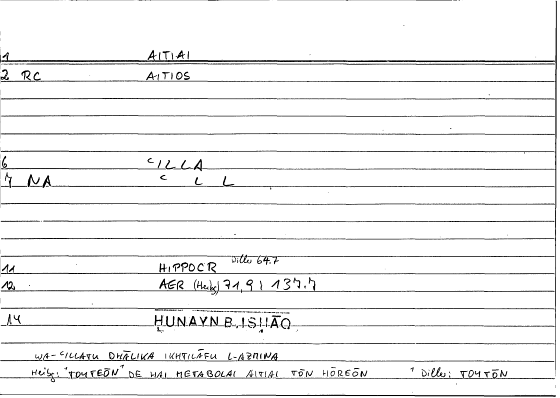 1 AITIAI
2 RC AITIOS
6 ʿILLA
7 NA ʿ L L
11 HIPPOCR Diller 64.7
12 AER (Heibg) 71,9; 137.7
14 ḤUNAYN B. ISḤĀQ
WA-ʿILLATU DHĀLIKA IKHTILĀFU L-AZMINA
Heibg: "TOYTEŌN" DE HAI METABOLAI AITIAI TŌN HŌREŌN ¹ Diller: TOYTŌN